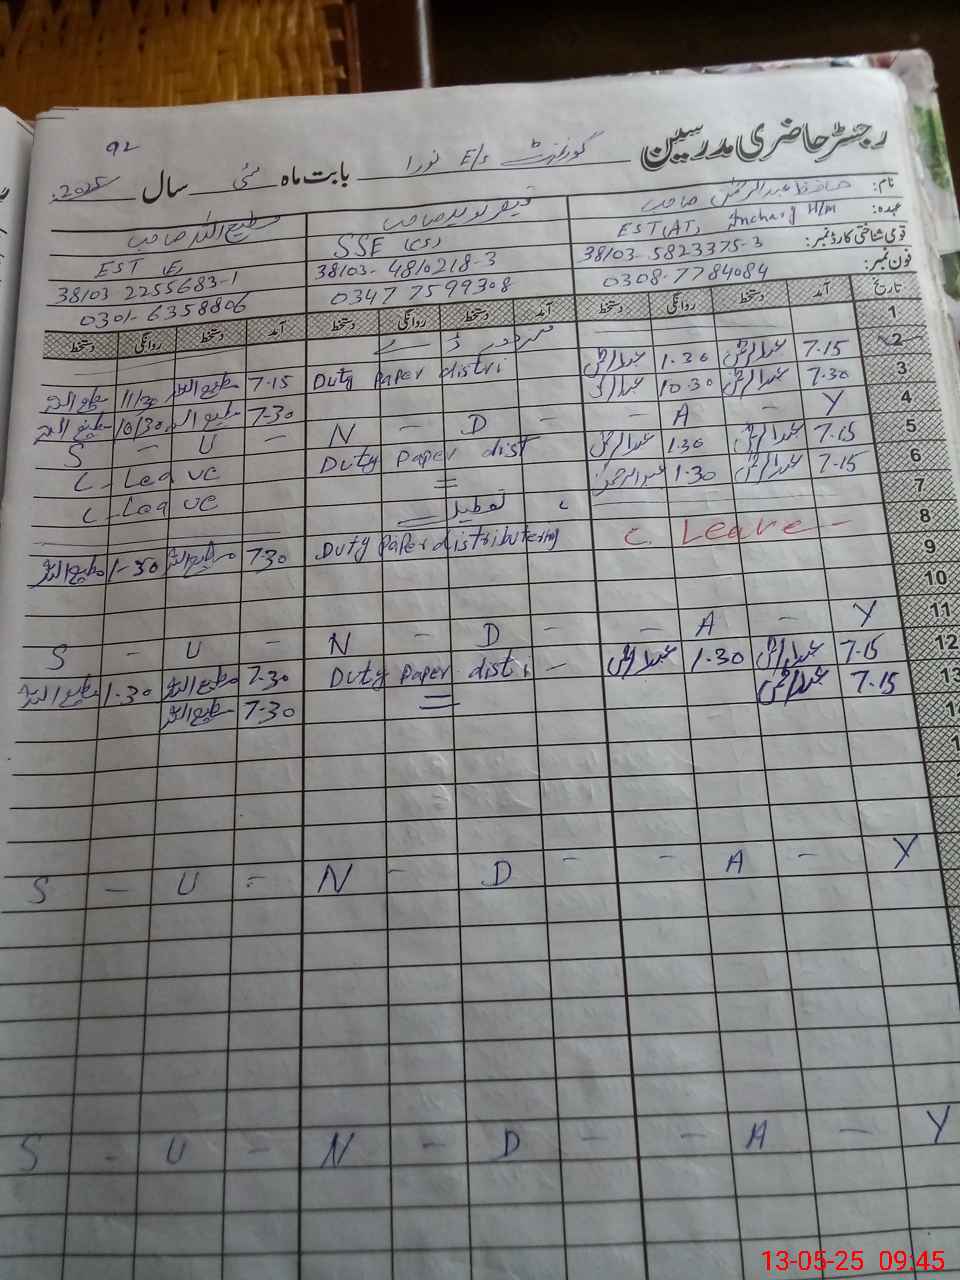 92
رجسٹر حاضری مدرسین گورنمنٹ E/s نورا بابت ماہ مئی سال 2025
نام: حافظ عبدالرحمٰن صاحب قیصر نوید صاحب مطیع اللہ صاحب
عہدہ: EST (AT) Incharg H/m SSE (CS) EST (E)
قومی شناختی کارڈ نمبر: 38103-5823375-3 38103-4810218-3 38103 2255683-1
فون نمبر: 0308-7784084 0347 7599308 0301-6358806
تاریخ آمد دستخط روانگی دستخط آمد دستخط روانگی دستخط آمد دستخط روانگی دستخط
1 مزدور ڈے
2 7-15 1.30 Duty Paper distri 7-15 مطیع اللہ 11/30 مطیع اللہ
3 7-30 10.30 7-30 مطیع اللہ 10/30 مطیع اللہ
4 S - U - N - D - - A - Y
5 7-15 1.30 Duty Paper dist C - Lea ve
6 7-15 1-30 = C - Lea ve
7 تعطیل
8 C. Leave - Duty Paper distributering 7-30 مطیع اللہ 1-30 مطیع اللہ
9
10
11 S - U - N - D - - A - Y
12 7-15 1.30 Duty Paper distri - 7-30 مطیع اللہ 1-30 مطیع اللہ
13 7-15 = 7-30 مطیع اللہ
S - U - N - D - - A - Y
S - U - N - D - - A - Y
13-05-25 09:45